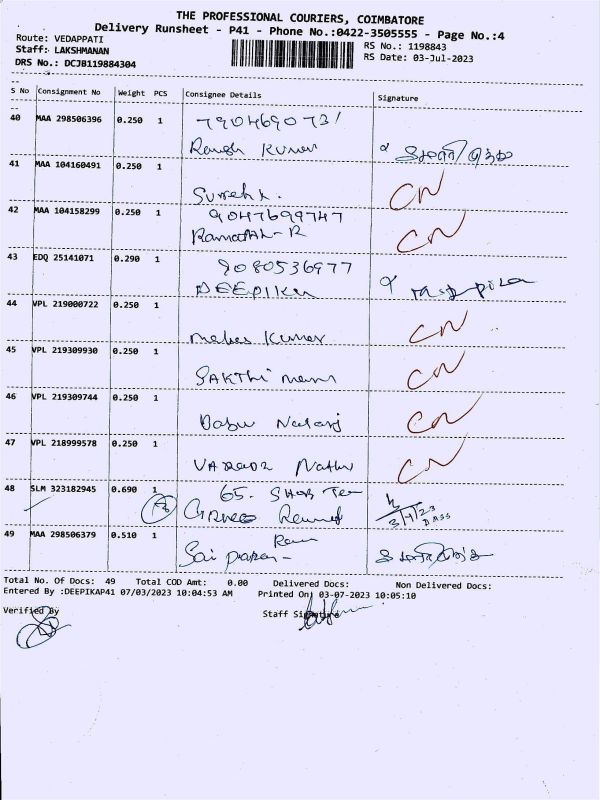 THE PROFESSIONAL COURIERS, COIMBATORE
Delivery Runsheet - P41 - Phone No.:0422-3505555 - Page No.:4
Route: VEDAPPATI
RS No.: 1198843
Staff: LAKSHMANAN
RS Date: 03-Jul-2023
DRS No.: DCJB119884304
S No Consignment No Weight PCS Consignee Details Signature
40 MAA 298506396 0.250 1 7904690731
Kumar
41 MAA 104160491 0.250 1
CN
42 MAA 104158299 0.250 1 9047699747
CN
43 EDQ 25141071 0.290 1 9080536977
DEEPIKA
44 VPL 219000722 0.250 1
Kumar CN
45 VPL 219309930 0.250 1
SAKThi CN
46 VPL 219309744 0.250 1
Babu CN
47 VPL 218999578 0.250 1
CN
48 SLM 323182945 0.690 1 65.
49 MAA 298506379 0.510 1
Sai
Total No. Of Docs: 49 Total COD Amt: 0.00 Delivered Docs: Non Delivered Docs:
Entered By :DEEPIKAP41 07/03/2023 10:04:53 AM Printed On: 03-07-2023 10:05:10
Verified By Staff Signature